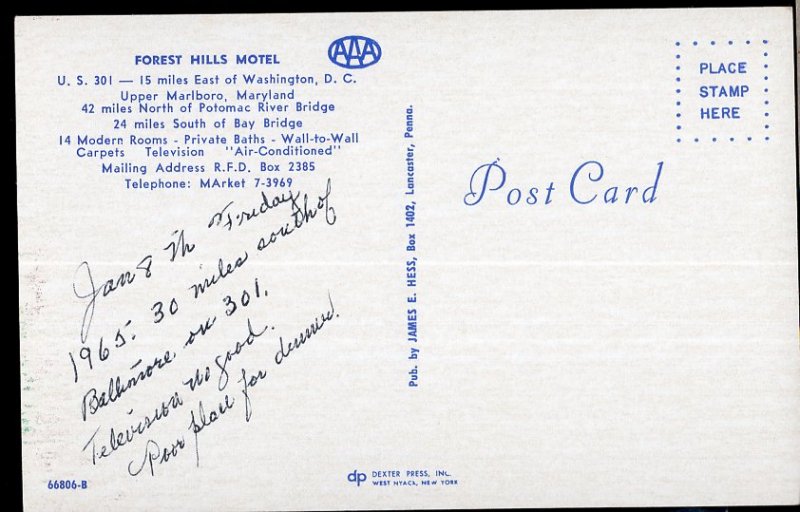 FOREST HILLS MOTEL
AAA
U. S. 301 — 15 miles East of Washington, D. C.
Upper Marlboro, Maryland
42 miles North of Potomac River Bridge
24 miles South of Bay Bridge
14 Modern Rooms - Private Baths - Wall-to-Wall
Carpets Television "Air-Conditioned"
Mailing Address R.F.D. Box 2385
Telephone: MArket 7-3969
Jan 8 th Friday
1965. 30 miles south of
Baltimore on 301.
Television no good.
Poor place for dinner.
66806-B
Pub. by JAMES E. HESS, Box 1402, Lancaster, Penna.
dp DEXTER PRESS, INC.
WEST NYACK, NEW YORK
Post Card
PLACE
STAMP
HERE